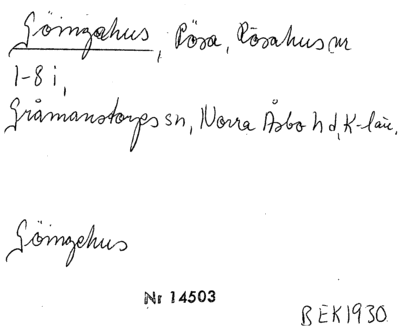 Göingehus, Pösa, Pösahus nr
1-8 i,
Gråmanstorps sn, Norra Åsbo hd, K-län.
Göingehus
Nr 14503
BEK1930